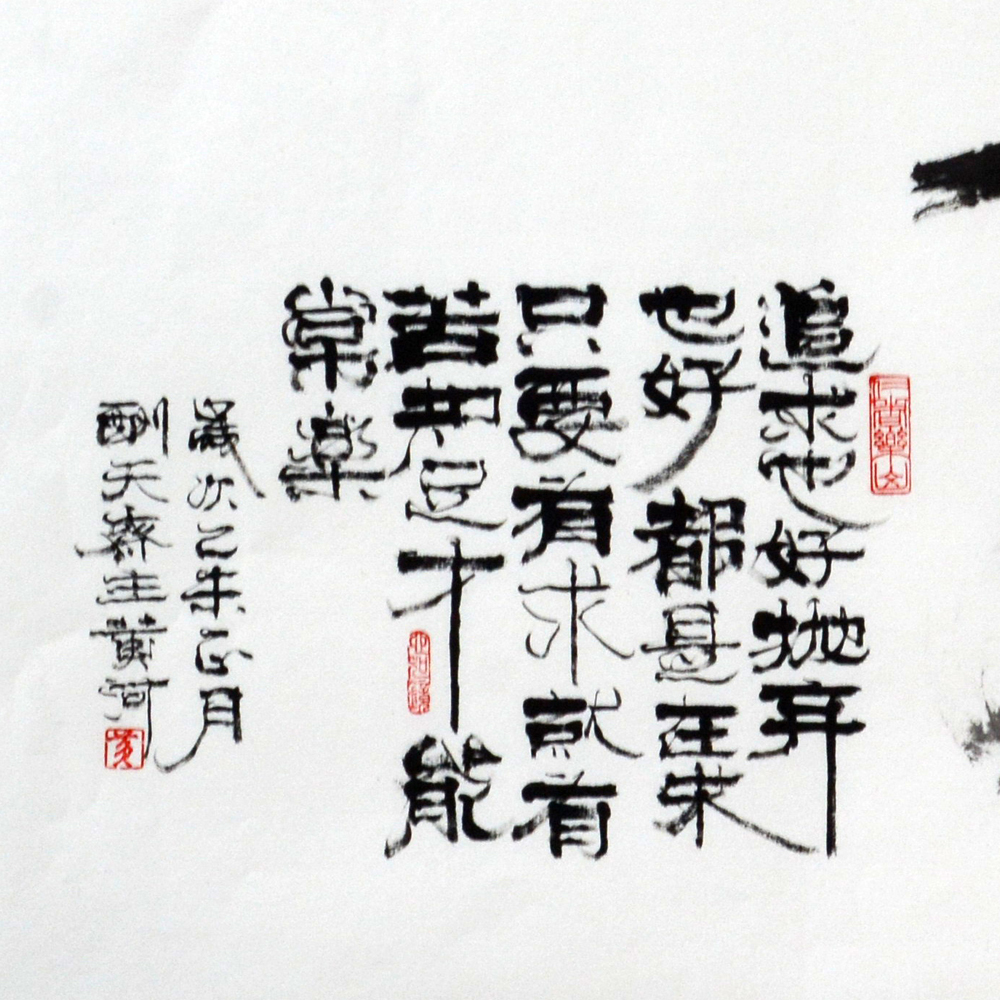 追求也好抛弃
也好都是在求
只要有求就有
苦知足才能
常樂
歲次乙未正月
酬天齋主黄河